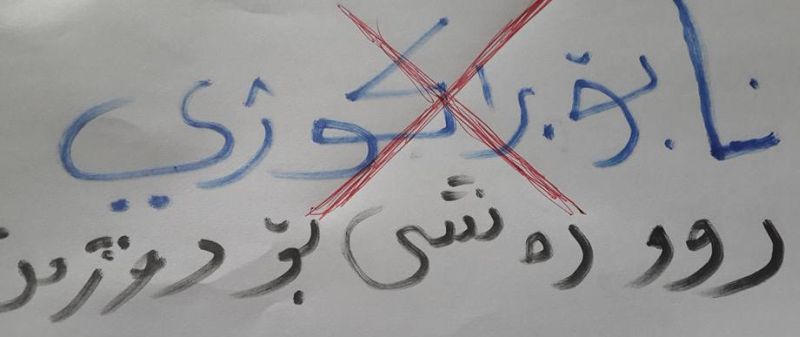 نا بۆ براکوژي
روو رەشی بۆ دوژمن